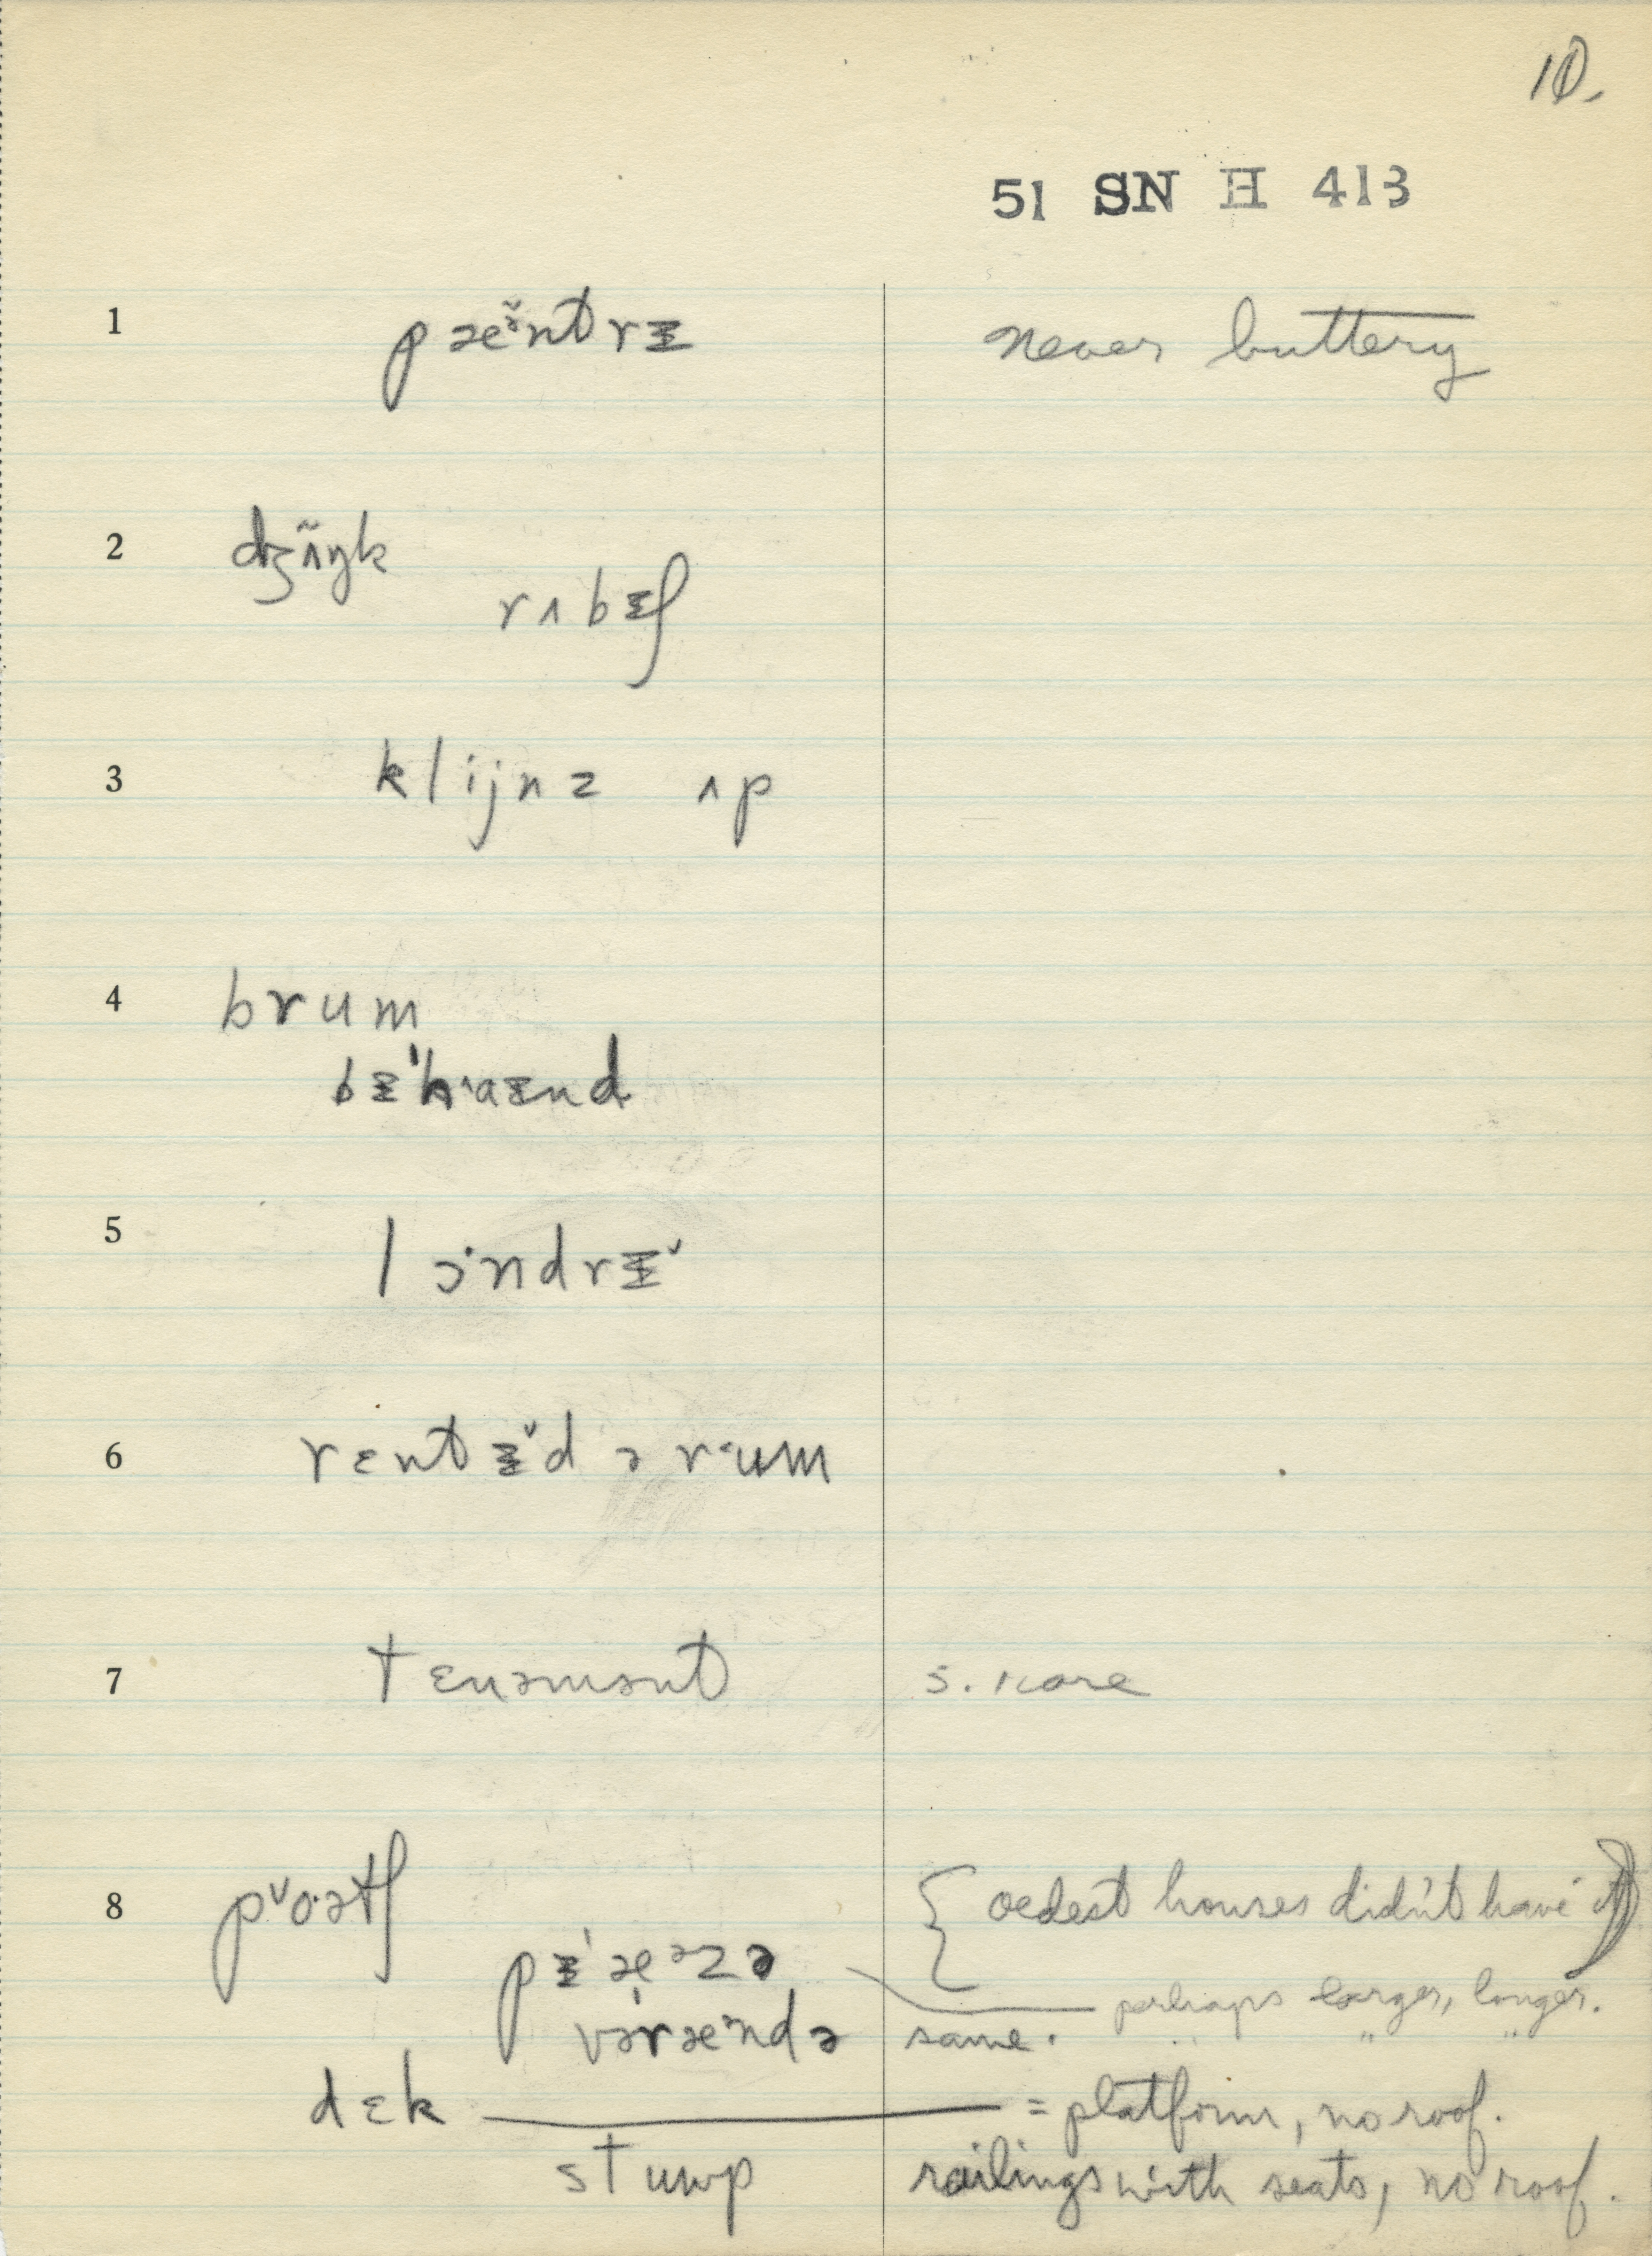 10.
51 SN H 413
1 pæə̆ntrɪ never buttery
2 dʒʌ̃ŋk
rʌbɪʃ
3 klijnz ʌp
4 brum
bɪˈhaɪnd
5 lɔ·ndrɪˇ
6 rɛntɪˇd ə rum
7 tɛnəmənt s. rare
8 pˇo·ətʃ { oldest houses didn't have it)
pɪˈæᵊzə perhaps larger, longer.
vəˈræᵊndə same. " " "
dɛk = platform, no roof.
stump railings with seats, no roof.